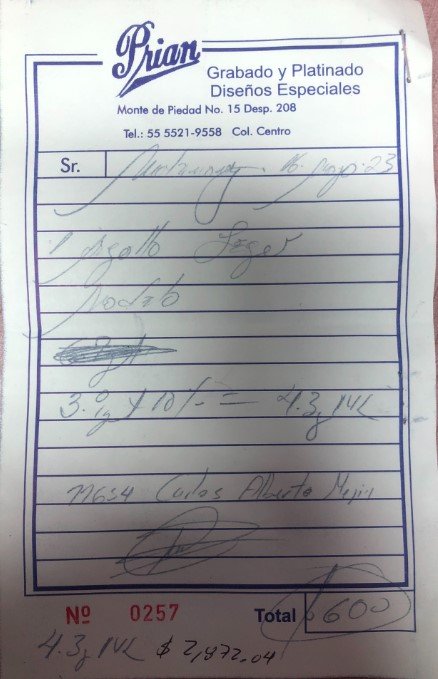 Prian
Grabado y Platinado
Diseños Especiales
Monte de Piedad No. 15 Desp. 208
Tel.: 55 5521-9558 Col. Centro
Sr. 23
Laser
Modelo
10% = 4.3g 14K
Carlos Alberto Mejia
Nº 0257 Total $600
4.3g 14K $2,872.04